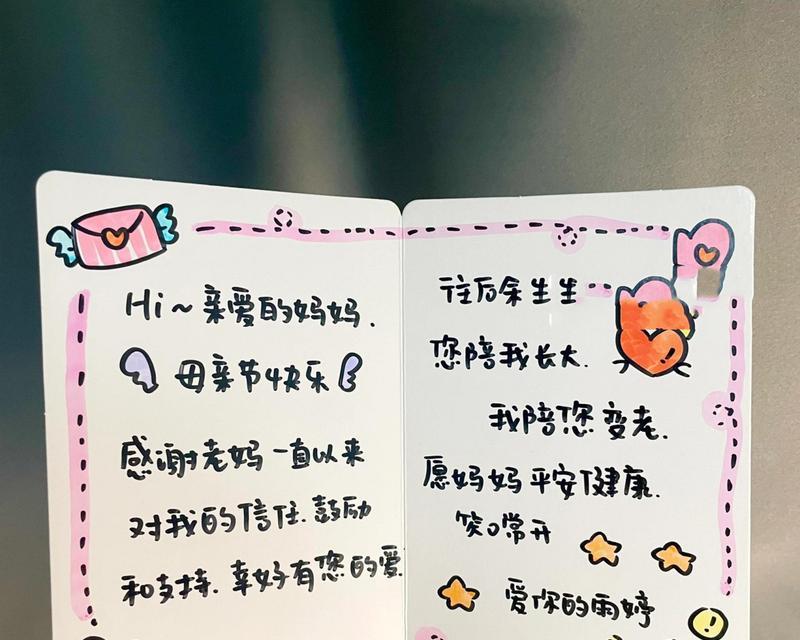 Hi~亲爱的妈妈.
母亲节快乐
感谢老妈一直以来
对我的信任.鼓励
和支持.幸好有您的爱.
往后余生生
您陪我长大.
我陪您变老.
愿妈妈平安健康.
笑口常开
爱你的雨婷